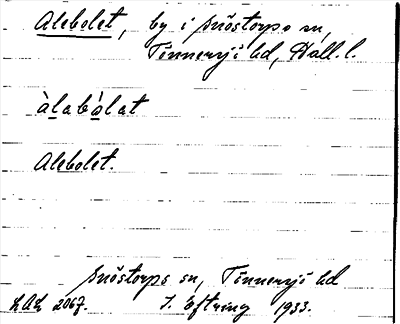 Alebolet, by i Snöstorps sn,
Tönnersjö hd, Hall. l.
àlabòlat
Alebolet.
Snöstorps sn, Tönnersjö hd
LAL 2067. J. Eftring 1933.